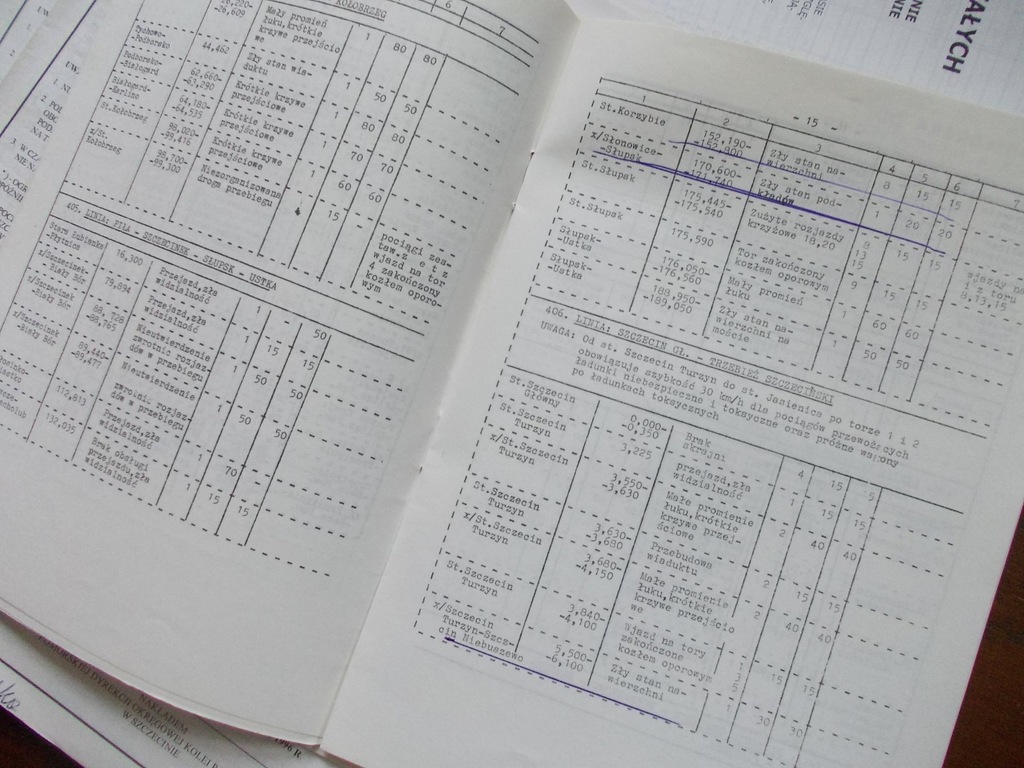 KOŁOBRZEG
6
7
-26,609
Mały promień
łuku,krótkie
krzywe przejścio
we
1
80
80
Tychowo-
-Podborsko
44,462
Zły stan wia-
duktu
1
50
50
Podborsko-
-Białogard
62,660-
-63,290
Krótkie krzywe
przejściowe
1
80
80
Białogard-
-Karlino
64,180-
-64,535
Krótkie krzywe
przejściowe
1
70
70
St.Kołobrzeg
98,020-
-99,416
Krótkie krzywe
przejściowe
1
60
60
x/St.
Kołobrzeg
98,700-
-99,300
Niezorganizowana
droga przebiegu
1
15
pociągi zes-
wjazd na tor
zakończony
kozłem oporo-
wym
405. LINIA: PIŁA - SZCZECINEK - SŁUPSK - USTKA
Stara Łubianka
-Płytnica
16,300
Przejazd,zła
widzialność
1
50
x/Szczecinek-
-Biały Bór
79,894
Przejazd,zła
widzialność
1
15
15
x/Szczecinek
-Biały Bór
88,728
-88,765
Niestwierdzenie
zwrotnic rozjaz-
dów w przebiegu
1
50
50
x/Szczecinek-
-Biały Bór
89,440-
-89,477
Nieutwierdzenie
zwrotnic rozjaz-
dów w przebiegu
1
50
50
112,613
Przejazd,zła
widzialność
1
70
132,835
Brak obsługi
przejazdu,zła
widzialność
1
15
15
- 15 -
1
2
3
4
5
6
7
St.Korzybie
152,190-
-152,900
Zły stan na-
wierzchni
8
15
15
x/Słonowice-
-Słupsk
170,600-
-171,740
Zły stan pod-
kładów
1
20
20
St.Słupsk
175,445-
-175,540
Zużyte rozjazdy
krzyżowe 18,20
8
13
15
15
15
wjazdy na
i z toru
8,13,15
St.Słupsk
175,590
Tor zakończony
kozłem oporowym
9
15
15
Słupsk-
-Ustka
176,050-
-176,560
Mały promień
łuku
1
60
60
Słupsk-
-Ustka
188,950-
-189,050
Zły stan na-
wierzchni na
moście
1
50
50
406. LINIA: SZCZECIN GŁ. - TRZEBIEŻ SZCZECIŃSKI
UWAGA: Od st. Szczecin Turzyn do st. Jasienica po torze 1 i 2
obowiązuje szybkość 30 km/h dla pociągów przewożących
ładunki niebezpieczne i toksyczne oraz próżne wagony
po ładunkach toksycznych
St.Szczecin
Główny
0,000-
-0,350
Brak
skrajni
4
15
5
St.Szczecin
Turzyn
3,225
przejazd,zła
widzialność
1
15
15
x/St.Szczecin
Turzyn
3,550-
-3,630
Małe promienie
łuku,krótkie
krzywe przej-
ściowe
1
40
40
St.Szczecin
Turzyn
3,630-
-3,680
Przebudowa
wiaduktu
2
15
15
x/St.Szczecin
Turzyn
3,680-
-4,150
Małe promienie
łuku,krótkie
krzywe przejścio
we
2
40
40
St.Szczecin
Turzyn
3,840-
-4,100
Wjazd na tory
zakończone
kozłem oporowym
3
5
15
15
x/Szczecin
Turzyn-Szcze-
cin Niebuszewo
5,500-
-6,100
Zły stan na-
wierzchni
1
30
30
AŁYCH
NAKŁADEM
POMORSKIEJ DYREKCJI OKRĘGOWEJ KOLEI P
W SZCZECINIE
1996 R.